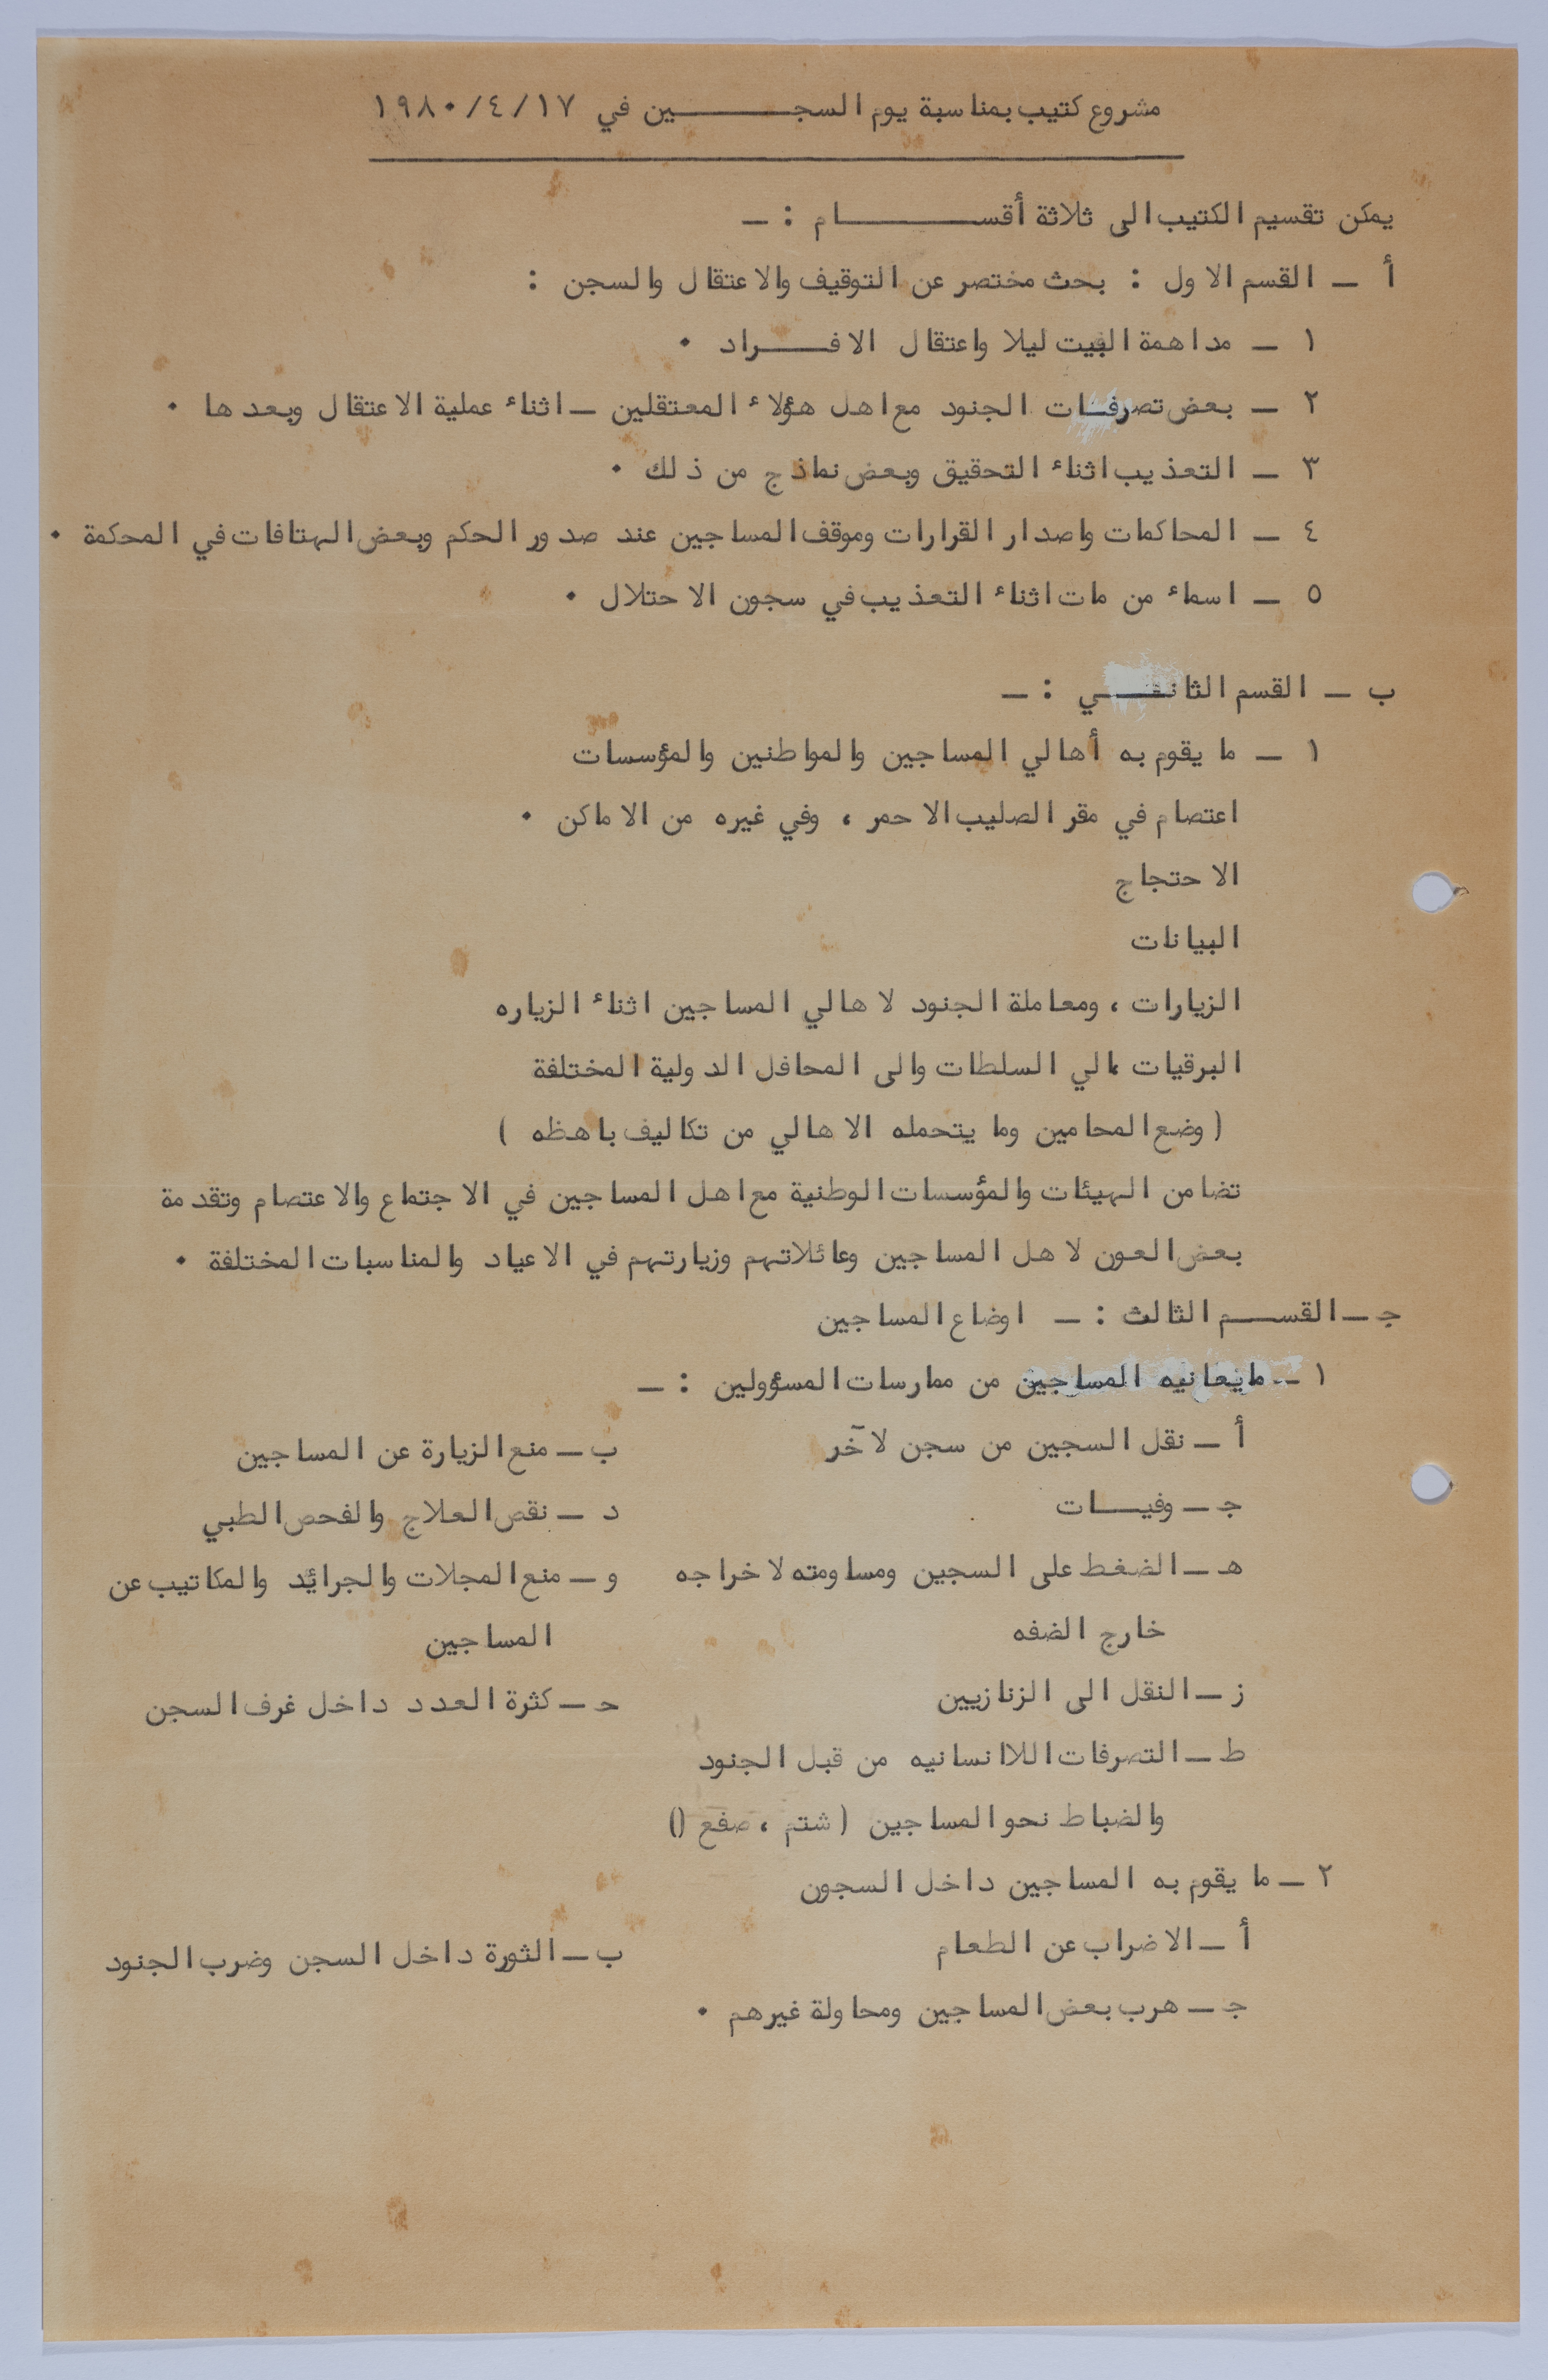 مشروع كتيب بمناسبة يوم السجـــــين في ١٩٨٠/٤/١٧
يمكن تقسيم الكتيب الى ثلاثة أقســــــام : ـ
أ ـ القسم الاول : بحث مختصر عن التوقيف والاعتقال والسجن :
١ ـ مداهمة البيت ليلا واعتقال الافـــراد ٠
٢ ـ بعض تصرفات الجنود مع اهل هؤلاء المعتقلين ـ اثناء عملية الاعتقال وبعدها ٠
٣ ـ التعذيب اثناء التحقيق وبعض نماذج من ذلك ٠
٤ ـ المحاكمات واصدار القرارات وموقف المساجين عند صدور الحكم وبعض الهتافات في المحكمة ٠
٥ ـ اسماء من مات اثناء التعذيب في سجون الاحتلال ٠
ب ـ القسم الثانـــي : ـ
١ ـ ما يقوم به أهالي المساجين والمواطنين والمؤسسات
اعتصام في مقر الصليب الاحمر ، وفي غيره من الاماكن ٠
الاحتجاج
البيانات
الزيارات ، ومعاملة الجنود لاهالي المساجين اثناء الزياره
البرقيات ،الي السلطات والى المحافل الدولية المختلفة
( وضع المحامين وما يتحمله الاهالي من تكاليف باهظه )
تضامن الهيئات والمؤسسات الوطنية مع اهل المساجين في الاجتماع والاعتصام وتقدمة
بعض العون لاهل المساجين وعائلاتهم وزيارتهم في الاعياد والمناسبات المختلفة ٠
جـ ـ القســـم الثالث : ـ اوضاع المساجين
١ ـ مايعانيه المساجين من ممارسات المسؤولين : ـ
أ ـ نقل السجين من سجن لآخر ب ـ منع الزيارة عن المساجين
جـ ـ وفيـــات د ـ نقص العلاج والفحص الطبي
هـ ـ الضغط على السجين ومساومته لاخراجه و ـ منع المجلات والجرائد والمكاتيب عن
خارج الضفه المساجين
ز ـ النقل الى الزنازيين حـ ـ كثرة العدد داخل غرف السجن
ط ـ التصرفات اللاانسانيه من قبل الجنود
والضباط نحو المساجين ( شتم ، صفع ()
٢ ـ ما يقوم به المساجين داخل السجون
أ ـ الاضراب عن الطعام ب ـ الثورة داخل السجن وضرب الجنود
جـ ـ هرب بعض المساجين ومحاولة غيرهم ٠